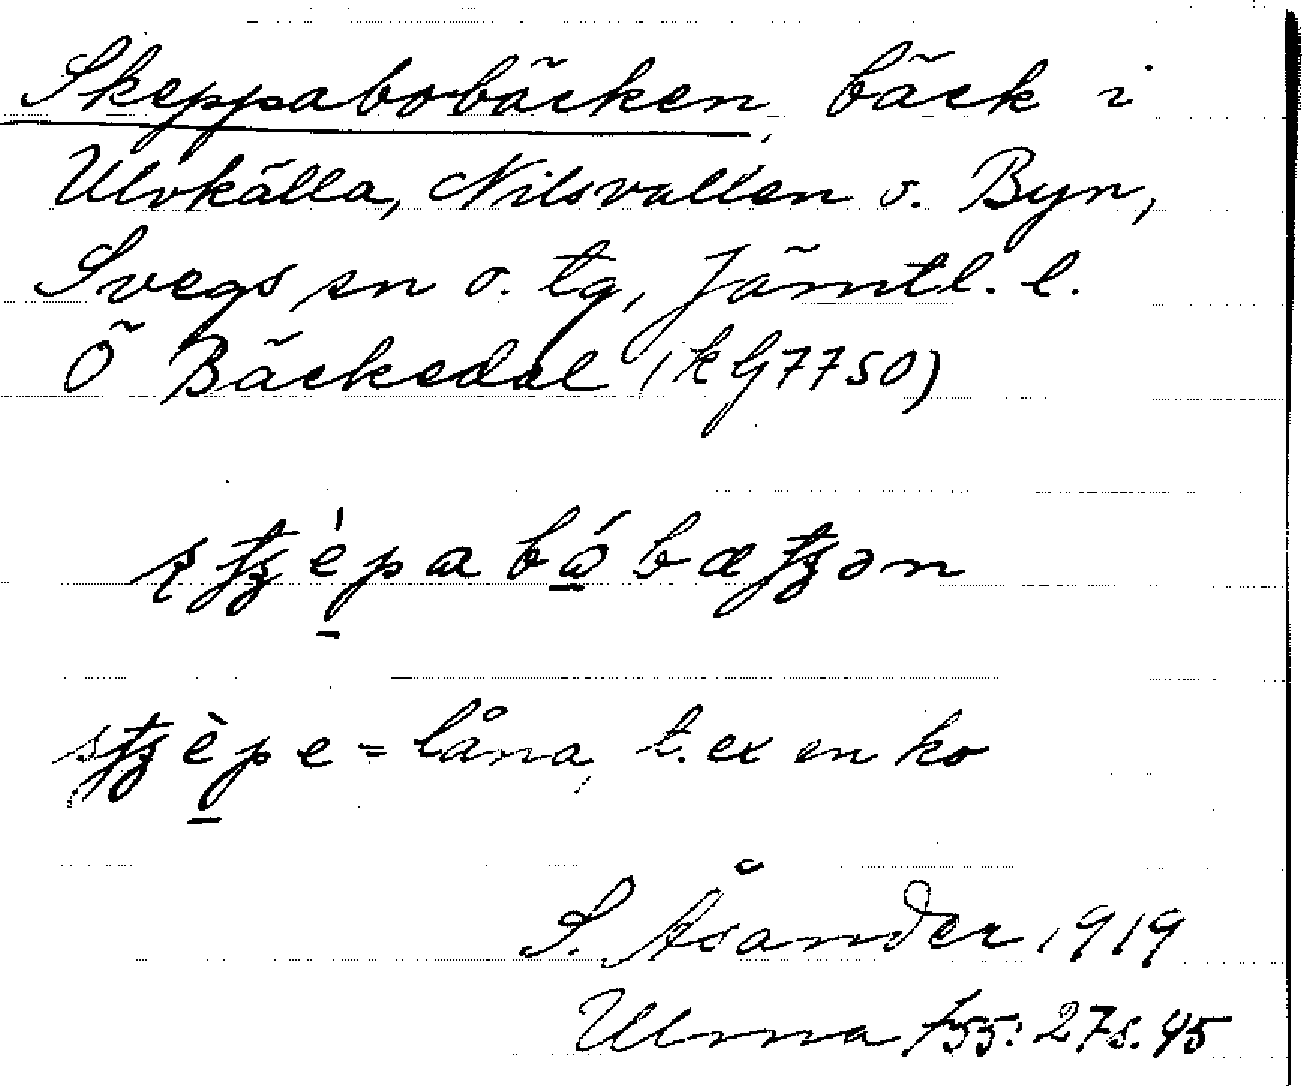 Skeppabobäcken, bäck i
Ulvkälla, Nilsvallen o. Byn,
Svegs sn o. tg, Jämtl. l.
Ö Bäckedal (kg 7750)
bó
sꞔèpe = låna, t. ex en ko
S. Åsander 1919
Ulma 155: 27 s. 45